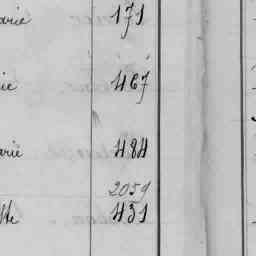 arie 171
ie 467
arie 484
2059
tte 451